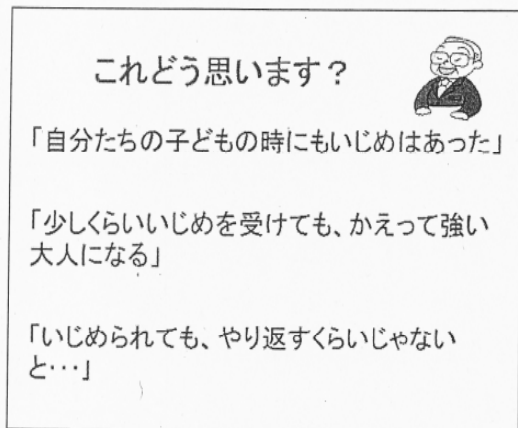 これどう思います？
「自分たちの子どもの時にもいじめはあった」
「少しくらいいじめを受けても、かえって強い
大人になる」
「いじめられても、やり返すくらいじゃない
と･･･」